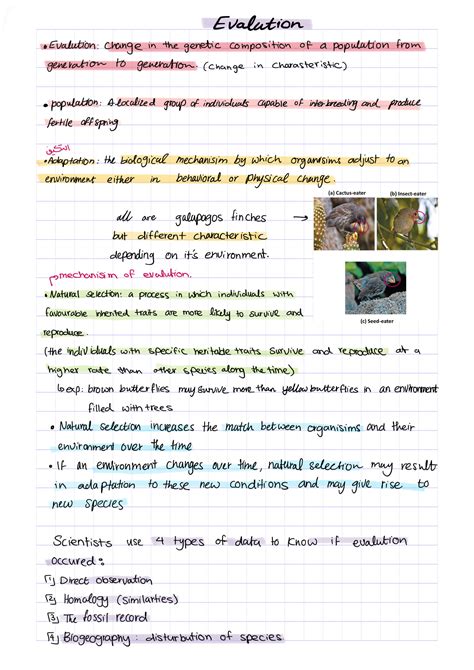 Evalution
• Evalution: change in the genetic composition of a population from
generation to generation. (change in charasteristic)
• population: A localized group of individuals capable of interbreeding and produce
fertile offspring
• Adaptation: the biological mechanisim by which organisims adjust to an
environment either in behavioral or physical change.
(a) Cactus-eater
(b) Insect-eater
all are galapagos finches →
but different characteristic
depending on it's environment.
(c) Seed-eater
mechanism of evalution.
• Natural selection: a process in which individuals with
favourable inherited traits are more likely to survive and
reproduce.
(the individuals with specific heritable traits survive and reproduce at a
higher rate than other species along the time)
↳ exp: brown butterflies may survive more than yellow butterflies in an environment
filled with trees
• Natural selection increases the match between organisims and their
environment over the time
• If an environment changes over time, natural selection may result
in adaptation to these new conditions and may give rise to
new species
Scientists use 4 types of data to know if evalution
occured:
1 Direct observation
2 Homology (similarties)
3 The fossil record
4 Biogeography: disturbution of species